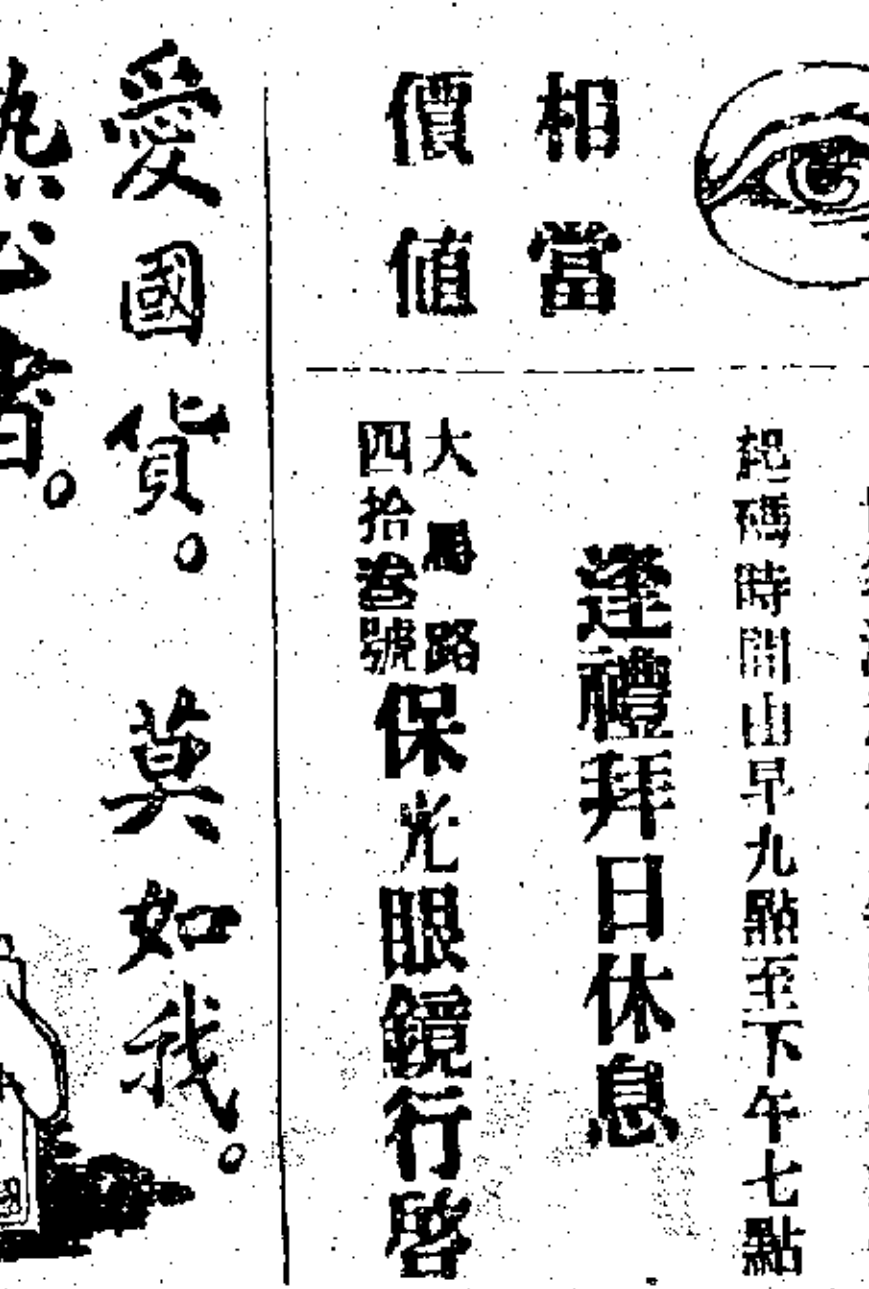 相當
價值
起碼時間由早九點至下午七點
逢禮拜日休息
大馬路
四拾叁號
保光眼鏡行啓
愛國貨。莫如我。